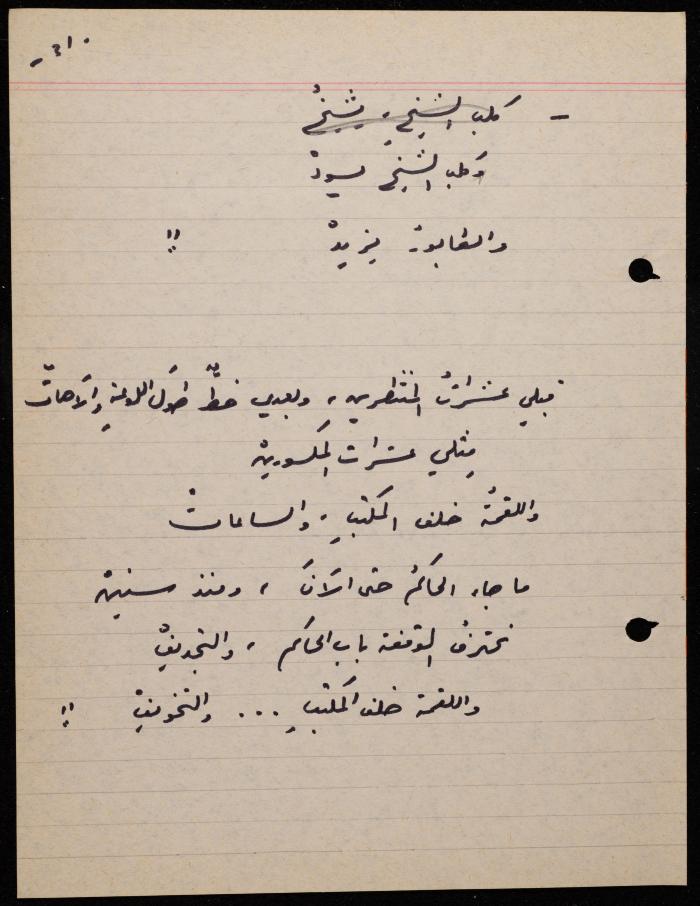 -٣١.
- كلب الشيخِ، يشيخُ
وكلب الشيخ يسودْ
والطابورْ يزيدْ !!
قبلي عشراتُ المنتظرين، وبعدي خطٌّ طول اللوعةِ والآهاتْ
مثلي عشرات المكسورينْ
واللقمةُ خلف المكتبِ، والساعاتْ
ما جاء الحاكمُ حتى الآنَ، ومنذ سنينْ
نحترفُ الوقفة بباب الحاكم، والتجديفْ
واللقمة خلف المكتبِ ... والتخويفْ !!